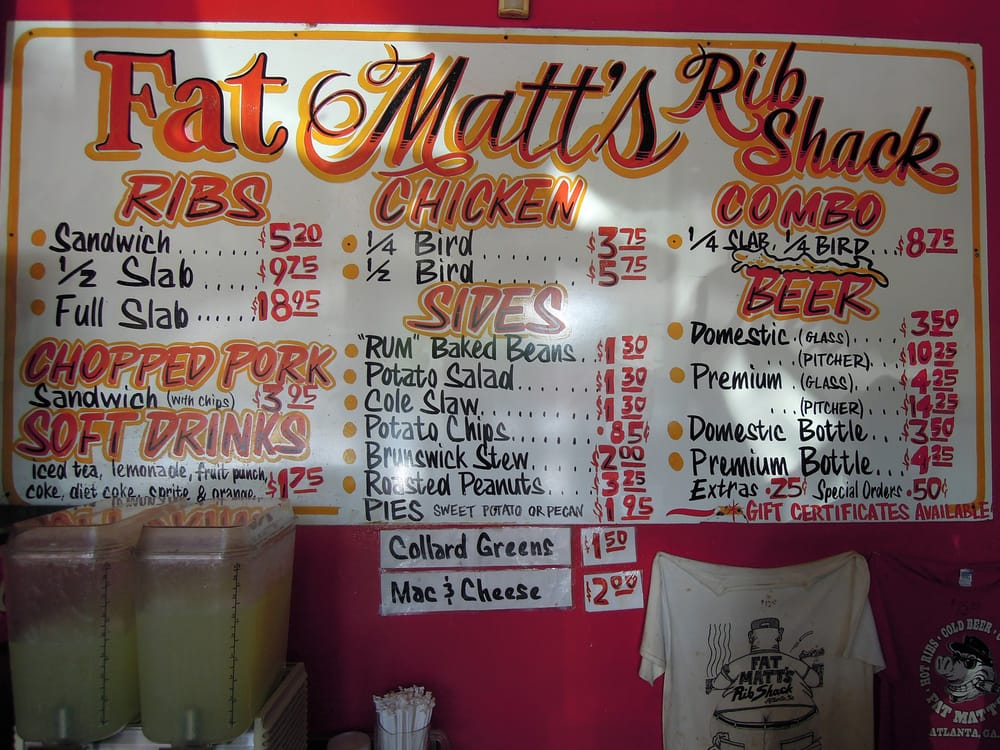 Fat Matt's Rib Shack
RIBS
Sandwich $5 20
1/2 Slab $9 75
Full Slab $18 95
CHOPPED PORK
Sandwich (with chips) $3 95
SOFT DRINKS
iced tea, lemonade, fruit punch,
coke, diet coke, sprite & orange. $1 75
CHICKEN
1/4 Bird $3 75
1/2 Bird $5 75
SIDES
"RUM" Baked Beans $1 30
Potato Salad $1 30
Cole Slaw $1 30
Potato Chips .85¢
Brunswick Stew $2 00
Roasted Peanuts $3 25
PIES SWEET POTATO OR PECAN $1 95
Collard Greens $1 50
Mac & Cheese $2 00
COMBO
1/4 SLAB, 1/4 BIRD $8 75
BEER
Domestic (GLASS) $3 50
(PITCHER) $10 25
Premium (GLASS) $4 25
(PITCHER) $14 25
Domestic Bottle $3 50
Premium Bottle $4 25
Extras .25¢ Special Orders .50¢
GIFT CERTIFICATES AVAILABLE
FAT
MATT'S
Rib Shack
HOT RIBS • COLD BEER
FAT MATT'S
ATLANTA, GA